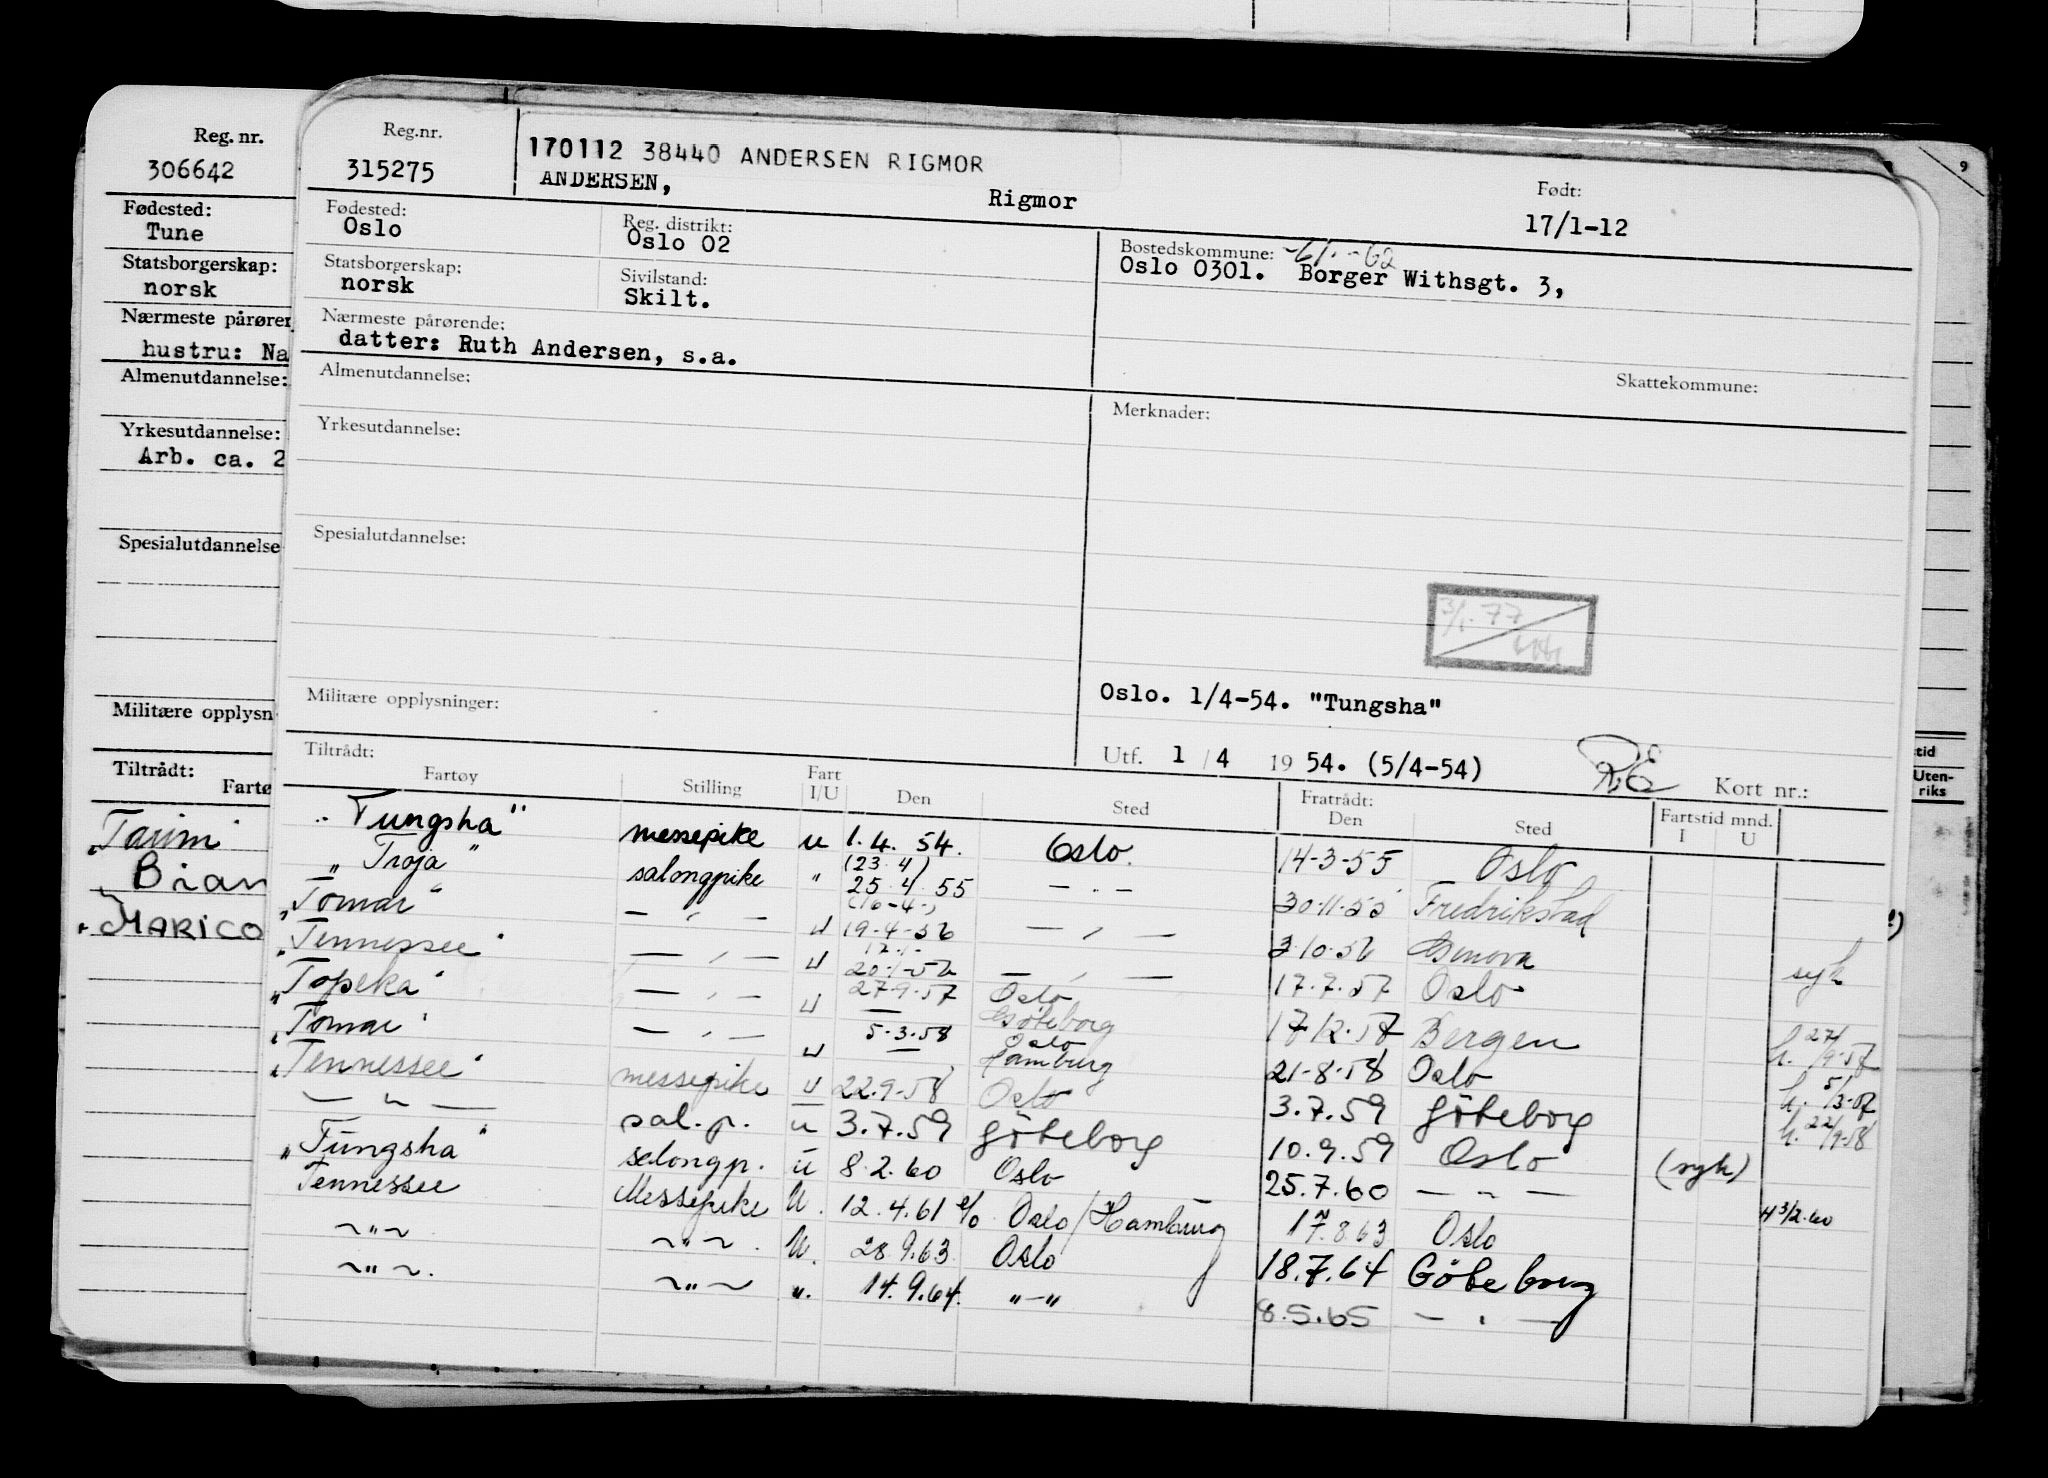 Reg. nr.
306642
Fødested:
Tune
Statsborgerskap:
norsk
Nærmeste pårører
hustru: Na
Almenutdannelse:
Yrkesutdannelse:
Arb. ca. 2
Spesialutdannelse
Militære opplysn
Tiltrådt:
Fartø
Brian
"MARICO
9
tid
Uten-
riks
Reg.nr.
315275
170112 38440 ANDERSEN RIGMOR
ANDERSEN, Rigmor
Født:
17/1-12
Fødested:
Oslo
Reg. distrikt:
Oslo 02
Bostedskommune: -61.-62
Oslo 0301. Borger Withsgt. 3,
Statsborgerskap:
norsk
Sivilstand:
Skilt.
Nærmeste pårørende:
datter: Ruth Andersen, s.a.
Skattekommune:
Almenutdannelse:
Merknader:
Yrkesutdannelse:
Spesialutdannelse:
3/1-77
Militære opplysninger:
Oslo. 1/4-54. "Tungsha"
Utf. 1 / 4 19 54. (5/4-54)
Kort nr.:
Tiltrådt:
Fartøy Stilling Fart I/U Den Sted Fratrådt: Den Sted Fartstid mnd. I U
"Tungsha" messepike u 1.4.54. Oslo. 14-3-55 Oslo
"Troja" salongpike " (23.4) 25.4.55 — " — 30-11-55 Fredrikstad
"Tomar" — " — u (16-4-) 19-4-56 — " — 3-10-56 Genova syk
"Tennessee" — " — u 20-1-57 — " — 17.7.57 Oslo
"Topeka" — " — u 27-9-57 Oslo Göteborg 17-12-57 Bergen h. 27/9-57
"Tomar" — " — u 5-3-58 Oslo Hamburg 21-8-58 Oslo
"Tennessee" messepike u 22.9-58 Oslo 3.7.59 Göteborg h. 22/9-58
— " — sal.p. u 3.7.59 Göteborg 10.9.59 Oslo (syk)
"Tungsha" salongp. u 8.2.60 Oslo 25.7.60 — " — H 3/2.60
Tennessee Messepike U. 12.4.61 e/o Oslo/Hamburg 17.8.63 Oslo
~ " ~ ~ " ~ . U. 28.9.63 Oslo 18.7.64 Göteborg
~ " ~. ~ " ~ ". 14.9.64. " — " 8.5.65 — " —